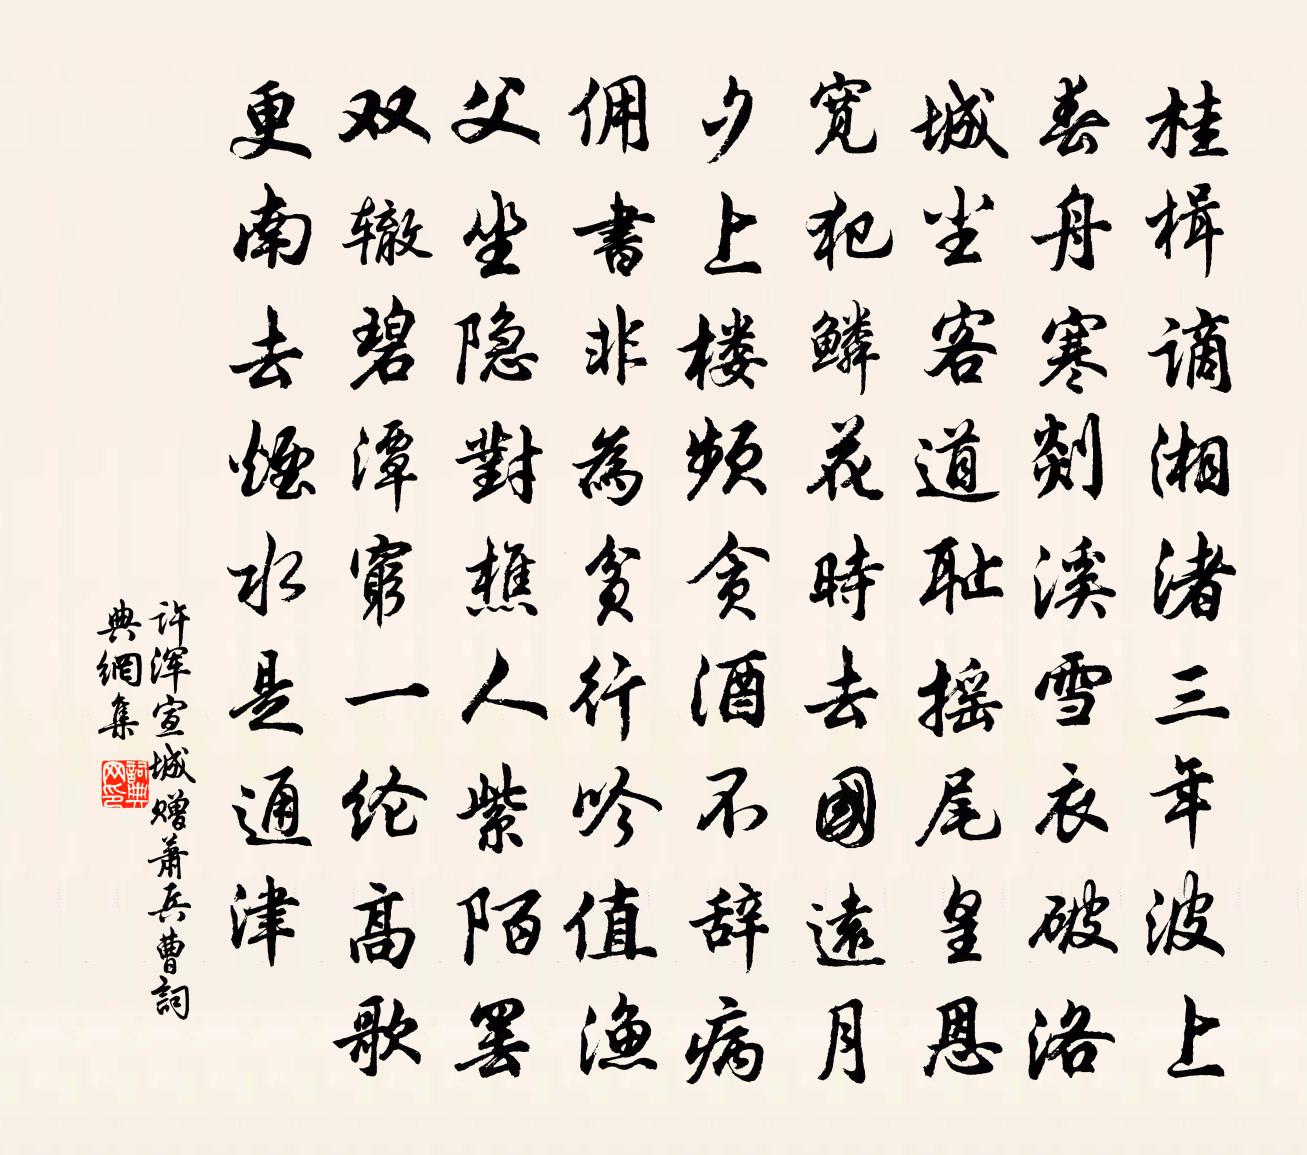 桂楫谪湘渚三年波上
春舟寒剡溪雪衣破洛
城尘客道耻摇尾皇恩
宽犯鳞花時去國遠月
夕上楼频贪酒不辞病
佣書非為貧行吟值渔
父坐隐對樵人紫陌罢
双辙碧潭窮一纶高歌
更南去煙水是通津
许浑宣城赠萧兵曹詞
典網集
詞典